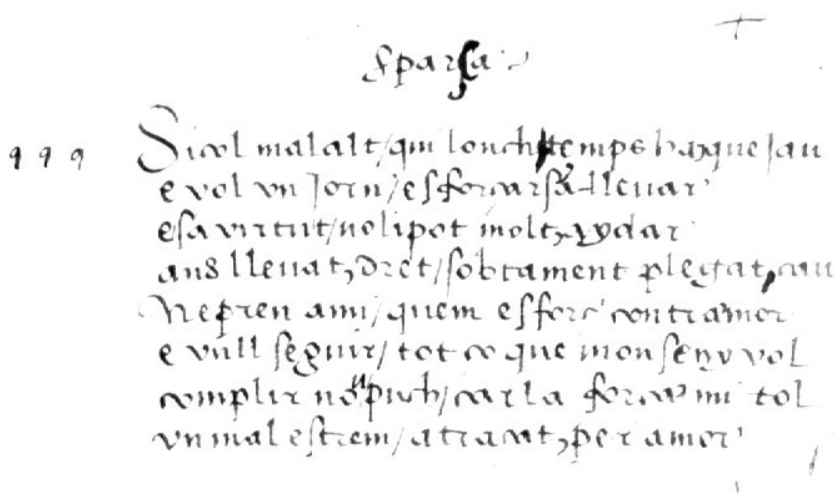 sparsa
999 Sicol malalt/qui lonch temps ha que jau
e vol vn jorn/esforcarsa lleuar
e sa virtut/no li pot molt aydar
ans lleuat, dret/sobtament plegat, cau
Ne pren ami/quem esforc contramor
e vull seguir/tot co que mon seny vol
complir no u puch/car la forca mi tol
vn mal estrem/atracat, per amor